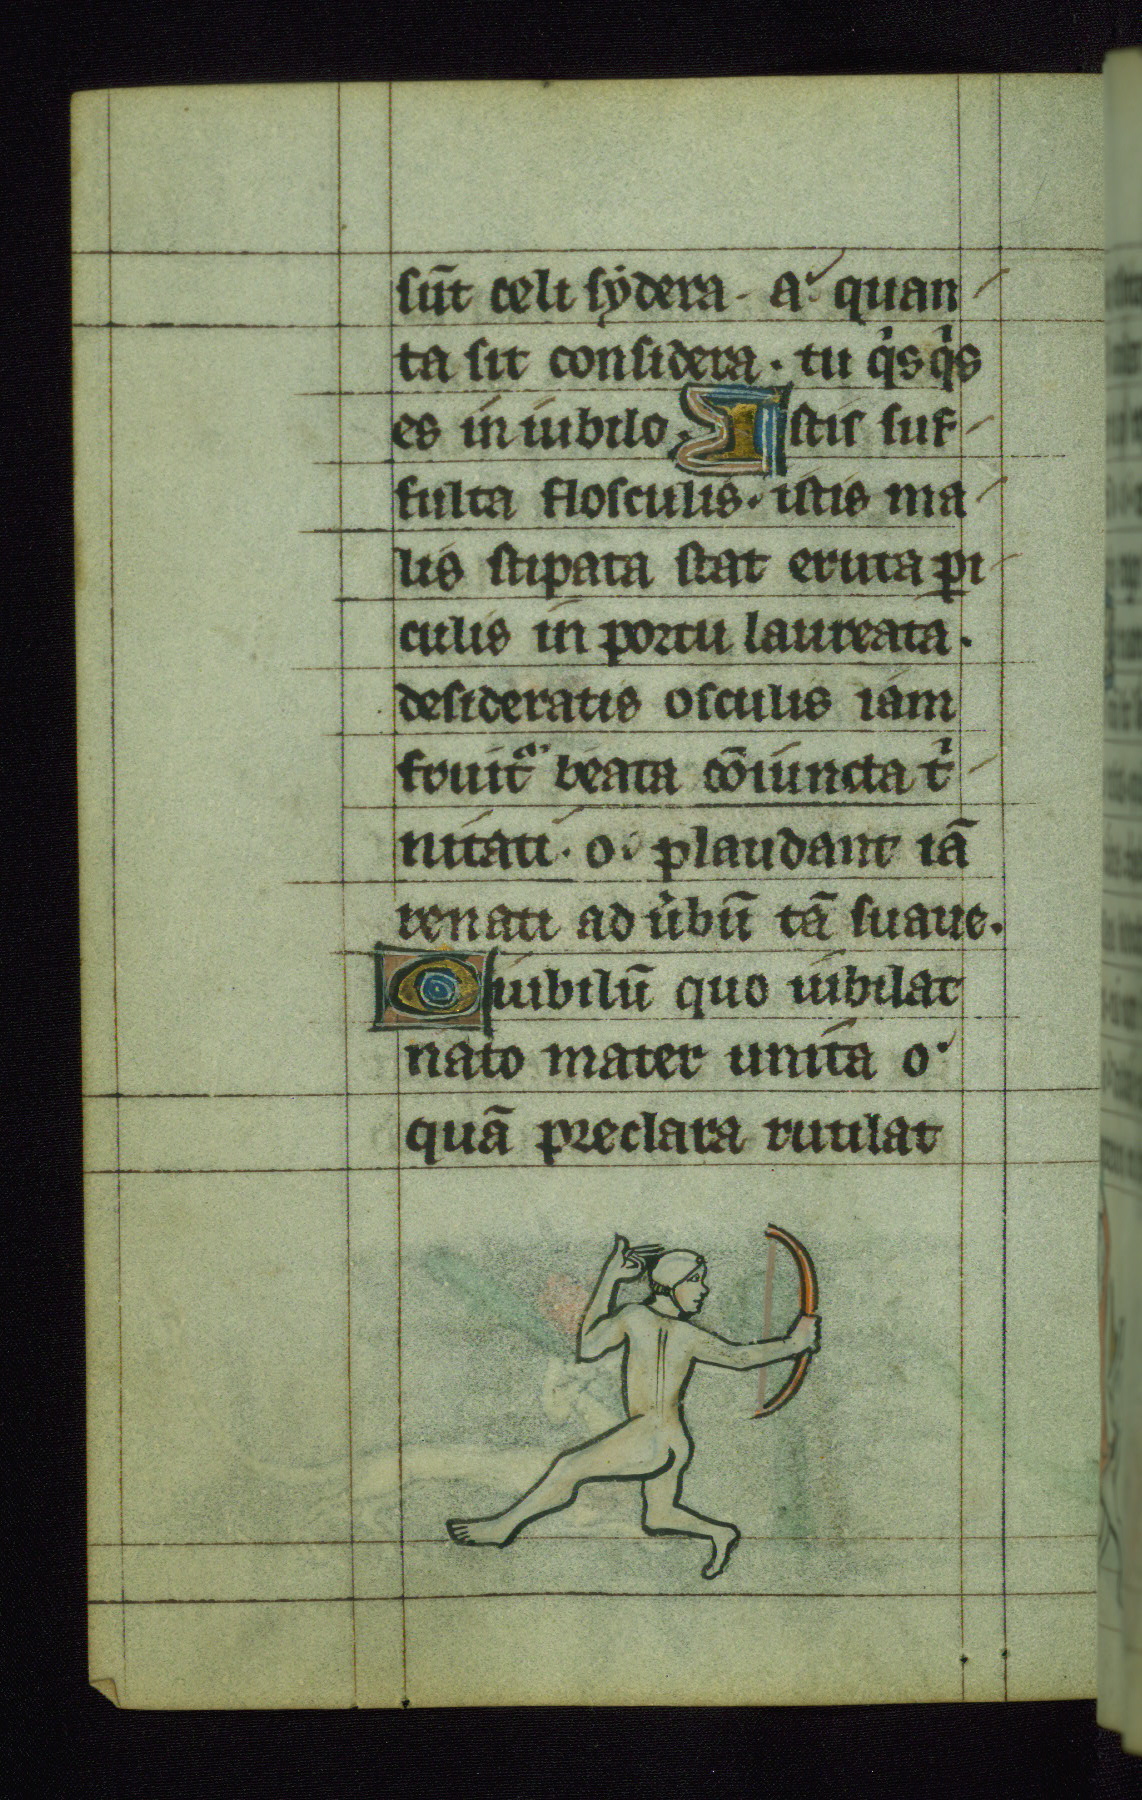 sūt celi sydera. a. quan
ta sit considera. tu qͥs qͥs
es in iubilo. Istis suf
fulta flosculis. istis ma
lis stipata stat eruta ꝑi
culis in portu laureata.
desideratis osculis iam
fruit᷑ᵃ beata cōiuncta tͥ
nitati. o. plaudant iā
renati ad ůbū tā suaue.
O iubilū quo iubilat
nato mater unita o.
quā preclara rutilat